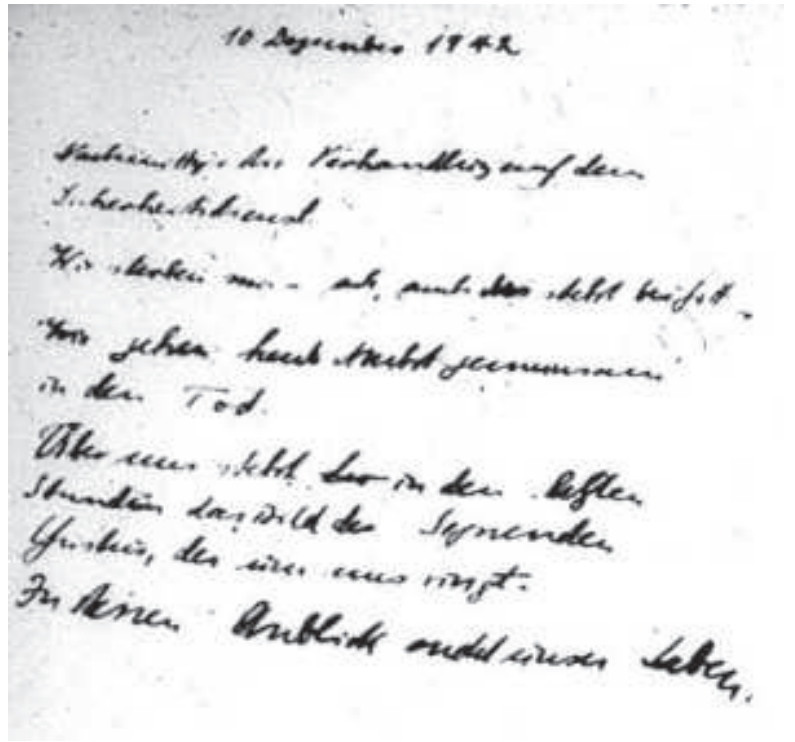 10 Dezember 1942
Nachmittags die Verhandlung auf dem
Sicherheitsdienst.
Wir sterben nun – ach, auch das steht bei Gott –
Wir gehen heute Nacht gemeinsam
in den Tod.
Über uns steht in den letzten
Stunden das Bild des Segnenden
Christus, der um uns ringt.
In dessen Anblick endet unser Leben.